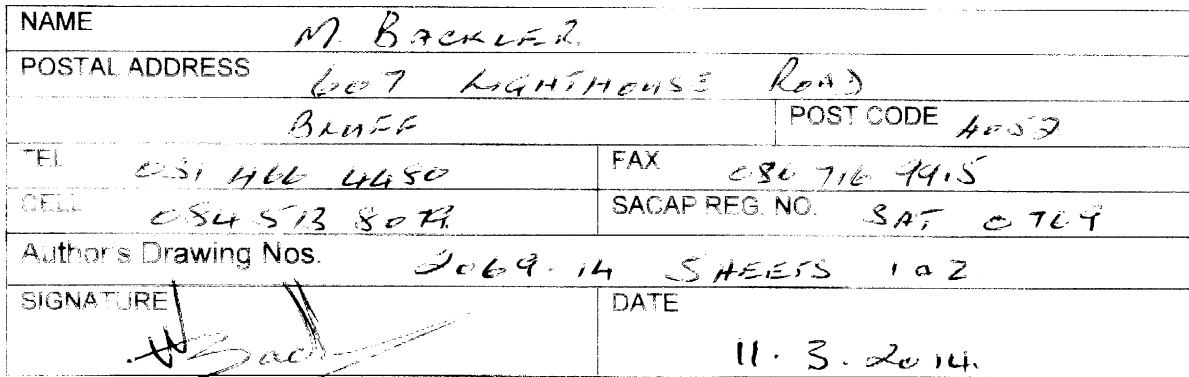 NAME M. BACKLER
POSTAL ADDRESS 607 LIGHTHOUSE ROAD
BLUFF POST CODE 4052
TEL 031 466 4480 FAX 086 716 9915
CELL 084 513
SACAP REG. NO. SAT 0769
Author's Drawing Nos. 2069.14 SHEETS 1 a 2
SIGNATURE DATE
11.3.2014.